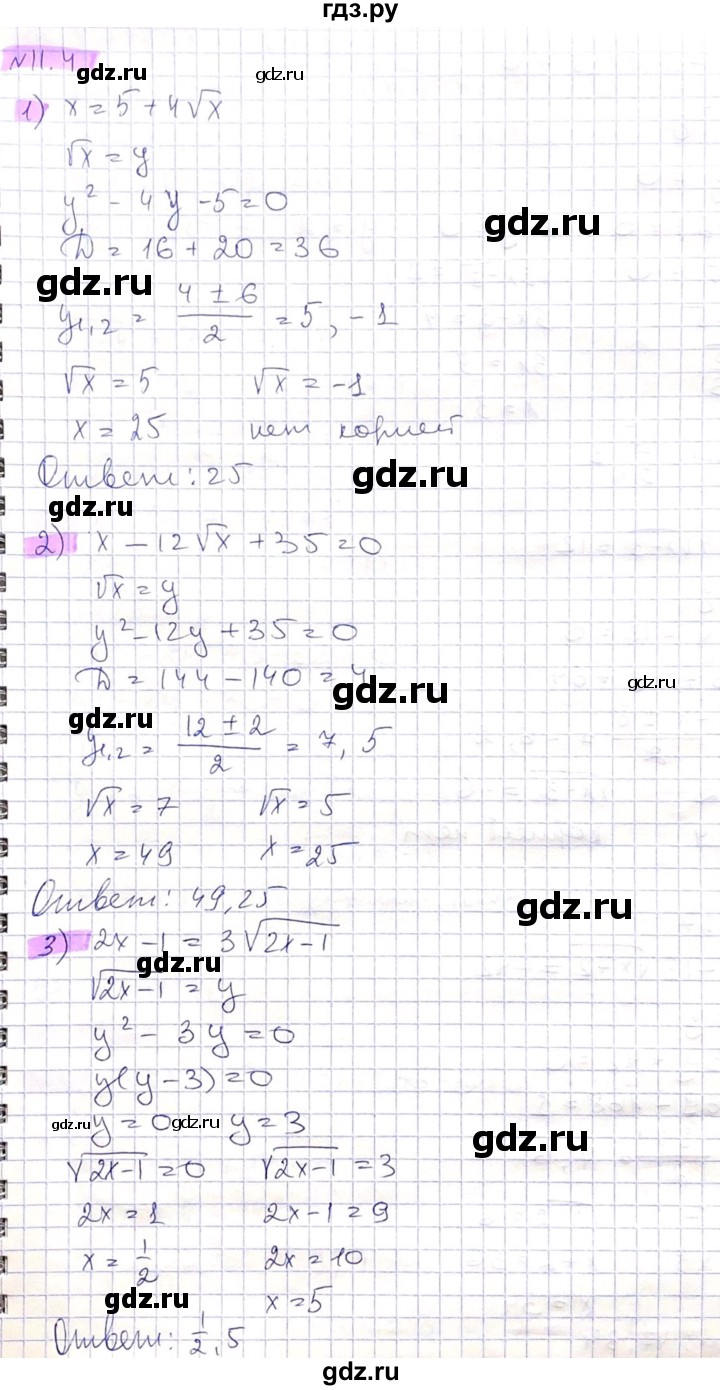 гдз.ру
N 11.4
gdz.ru gdz.ru
1) x = 5 + 4√x
√x = y
y² - 4y - 5 = 0
gdz.ru
D = 16 + 20 = 36
gdz.ru
y₁,₂ = (4 ± 6)/2 = 5, -1
√x = 5 √x = -1
x = 25 нет корней
Ответ: 25 gdz.ru
gdz.ru
2) x - 12√x + 35 = 0
√x = y
y² - 12y + 35 = 0
D = 144 - 140 = 4
gdz.ru gdz.ru
gdz.ru
y₁,₂ = (12 ± 2)/2 = 7, 5
√x = 7 √x = 5
x = 49 x = 25
Ответ: 49, 25 gdz.ru
3) 2x - 1 = 3√(2x-1)
gdz.ru
√(2x-1) = y
y² - 3y = 0
y(y - 3) = 0
gdz.ru y = 0 gdz.ru y = 3
gdz.ru
√(2x-1) = 0 √(2x-1) = 3
2x = 1 2x - 1 = 9
x = 1/2 2x = 10
gdz.ru x = 5
Ответ: 1/2, 5
gdz.ru